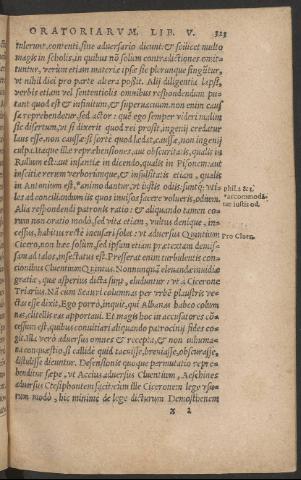 ORATORIARVM LIB. V. 323
tulerunt, conuenti, sine aduersario dicunt: & scilicet multo
magis in scholis, in quibus nō solum contradictiones omit-
tuntur, verùm etiam materiæ ipsæ sic plerunque finguntur,
vt nihil dici pro parte altera possit. Alij diligentia lapsi,
verbis etiam vel sententiolis omnibus respondendum pu-
tant quod est & infinitum, & superuacuum. non enim causa
reprehenditur, sed actor: quē ego semper videri malim
sic disertum, vt si dixerit quod rei prosit, ingenij credatur
laus esse, non causæ: si fortè quod lædat, causæ, non ingenij
culpa. Itaque illæ reprehensiones, aut obscuritatis, qualis in
Rullum est: aut infantiæ in dicendo, qualis in Pisonem: aut
inscitiæ rerum verborúmque, & insulsitatis etiam, qualis
in Antonium est, *animo dantur, vt iustis odiis: suntq; vti-
les ad conciliandum iis quos inuisos facere volueris, odium.
Alia respondendi patronis ratio: & aliquando tamen eo-
rum non oratio modò, sed vita etiam, vultus denique, in-
cessus, habitus rectè incusari solet: vt aduersus Quintium
Cicero, non hæc solùm, sed ipsam etiam prætextam demis-
sam ad talos, insectatus est. Presserat enim turbulentis con-
cionibus Cluentium Quintius. Nonnunquā eleuandæ inuidiæ
gratia, quæ asperius dicta sunt, eluduntur: vt à Cicerone
Triarius. Nā cùm Scauri columnas per vrbē plaustris ve-
ctas esse dixit, Ego porrò, inquit, qui Albanas habeo colum-
nas, clitellis eas apportaui. Et magis hoc in accusatores cō-
cessum est, quibus conuitiari aliquando patrocinij fides co-
git. Illa verò aduersus omnes & recepta, & non inhuma-
na conquestio, si callidè quid tacuisse, breuiasse, obscurasse,
distulisse dicuntur. Defensionis quoque permutatio repre-
henditur sæpe, vt Accius aduersus Cluentium, Aeschines
aduersus Ctesiphontem faciunt: cùm ille Ciceronem lege vsu-
rum modò, hic minimè de lege dicturum Demosthenem
phil. 2 & 3.
*accommodā-
tur iustis od.
Pro Cluen.
X 2